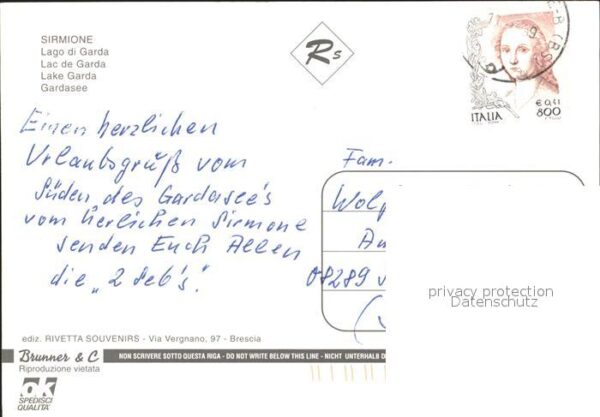 SIRMIONE
Lago di Garda
Lac de Garda
Lake Garda
Gardasee
Rs
ITALIA
€ 0,41
800
Einen herzlichen
Urlaubsgruß vom
Süden des Gardasee's
vom herlichen Sirmone
senden Euch Allen
die „2 Seb's".
Fam.
Wolf
An
08289
privacy protection
Datenschutz
ediz. RIVETTA SOUVENIRS - Via Vergnano, 97 - Brescia
Brunner & C
NON SCRIVERE SOTTO QUESTA RIGA - DO NOT WRITE BELOW THIS LINE - NICHT UNTERHALB D
Riproduzione vietata
OK
SPEDISCI
QUALITA'